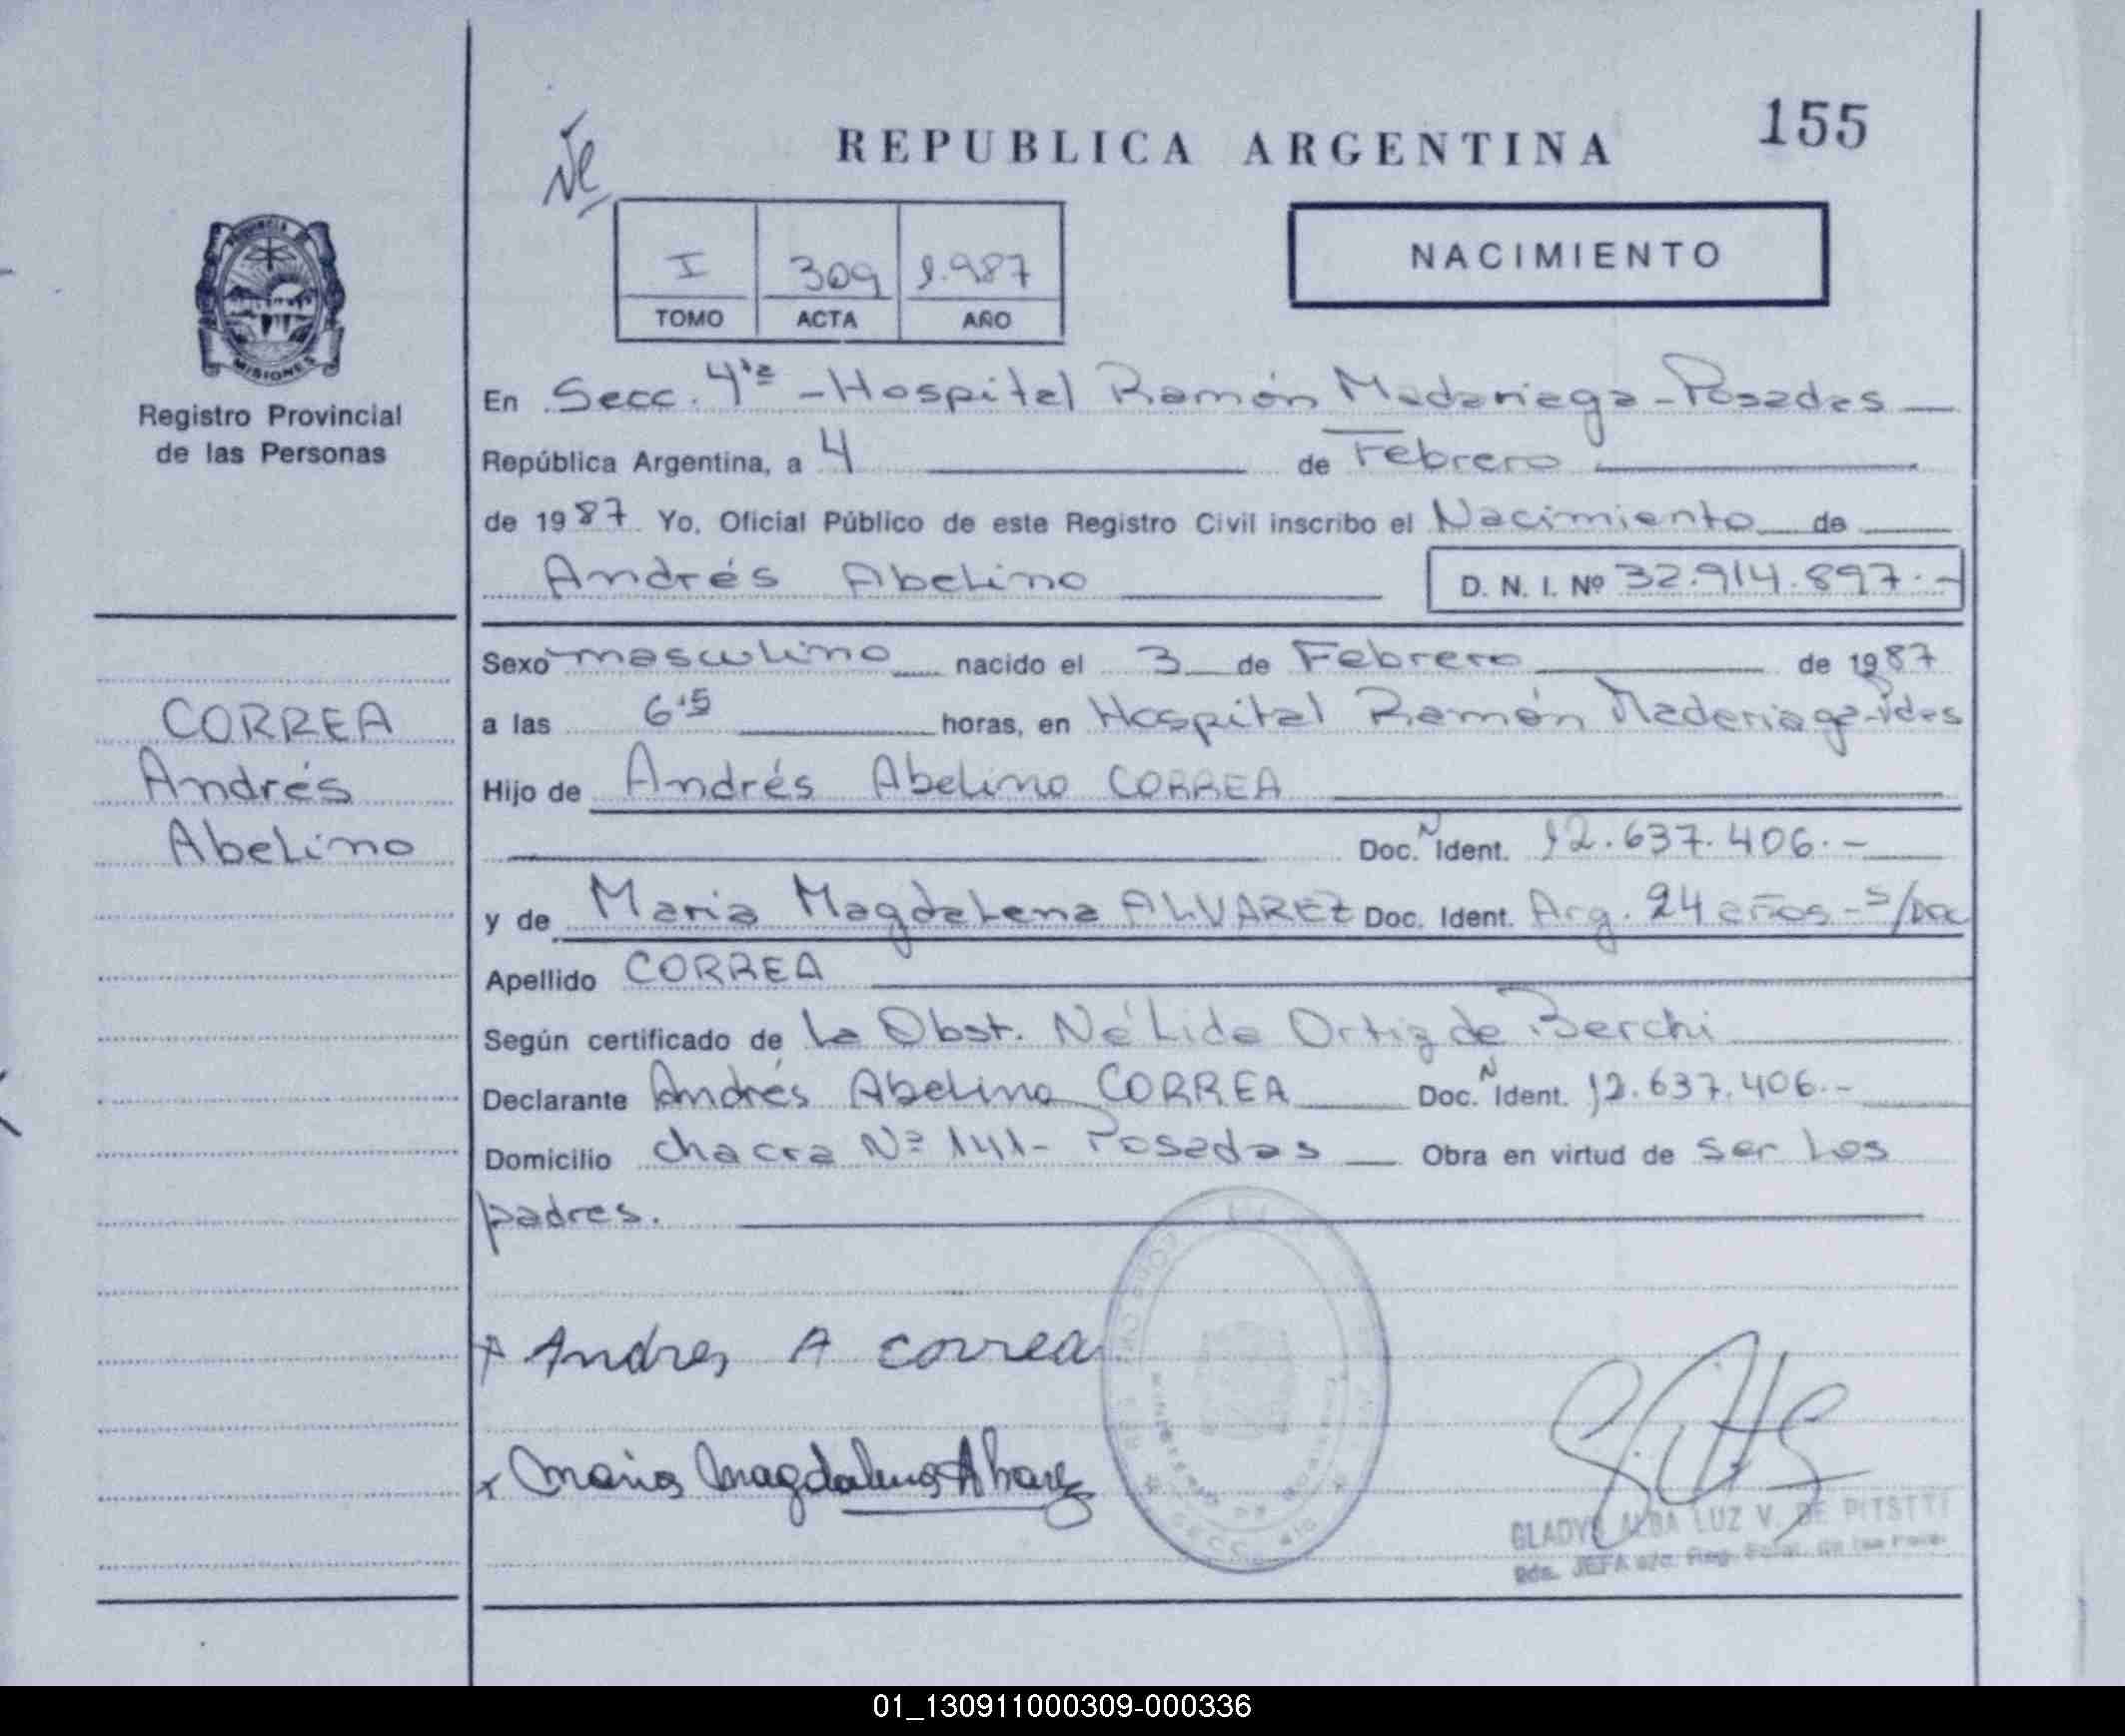 155
REPUBLICA ARGENTINA
NACIMIENTO
I 309 1.987
TOMO ACTA AÑO
PROVINCIA DE
MISIONES
Registro Provincial
de las Personas
En Secc. 4ta - Hospital Ramón Madariaga - Posadas
República Argentina, a 4 de Febrero
de 1987 Yo, Oficial Público de este Registro Civil inscribo el Nacimiento de
Andrés Abelino D. N. I. Nº 32.914.897.-
Sexo masculino nacido el 3 de Febrero de 1987
a las 6'5 horas, en Hospital Ramón Madariaga-Pdas
Hijo de Andrés Abelino CORREA
Doc. N Ident. 12.637.406.-
y de Maria Magdalena ALVAREZ Doc. Ident. Arg. 24 años - S/Doc
Apellido CORREA
Según certificado de la Obst. Nélida Ortiz de Berchi
Declarante Andrés Abelino CORREA Doc. N Ident. 12.637.406.-
Domicilio chacra Nº 141 - Posadas Obra en virtud de ser los
padres.
CORREA
Andrés
Abelino
Andres A correa
Maria Magdalena Alvarez
GLADYS ALBA LUZ V. DE
JEFA
01_130911000309-000336